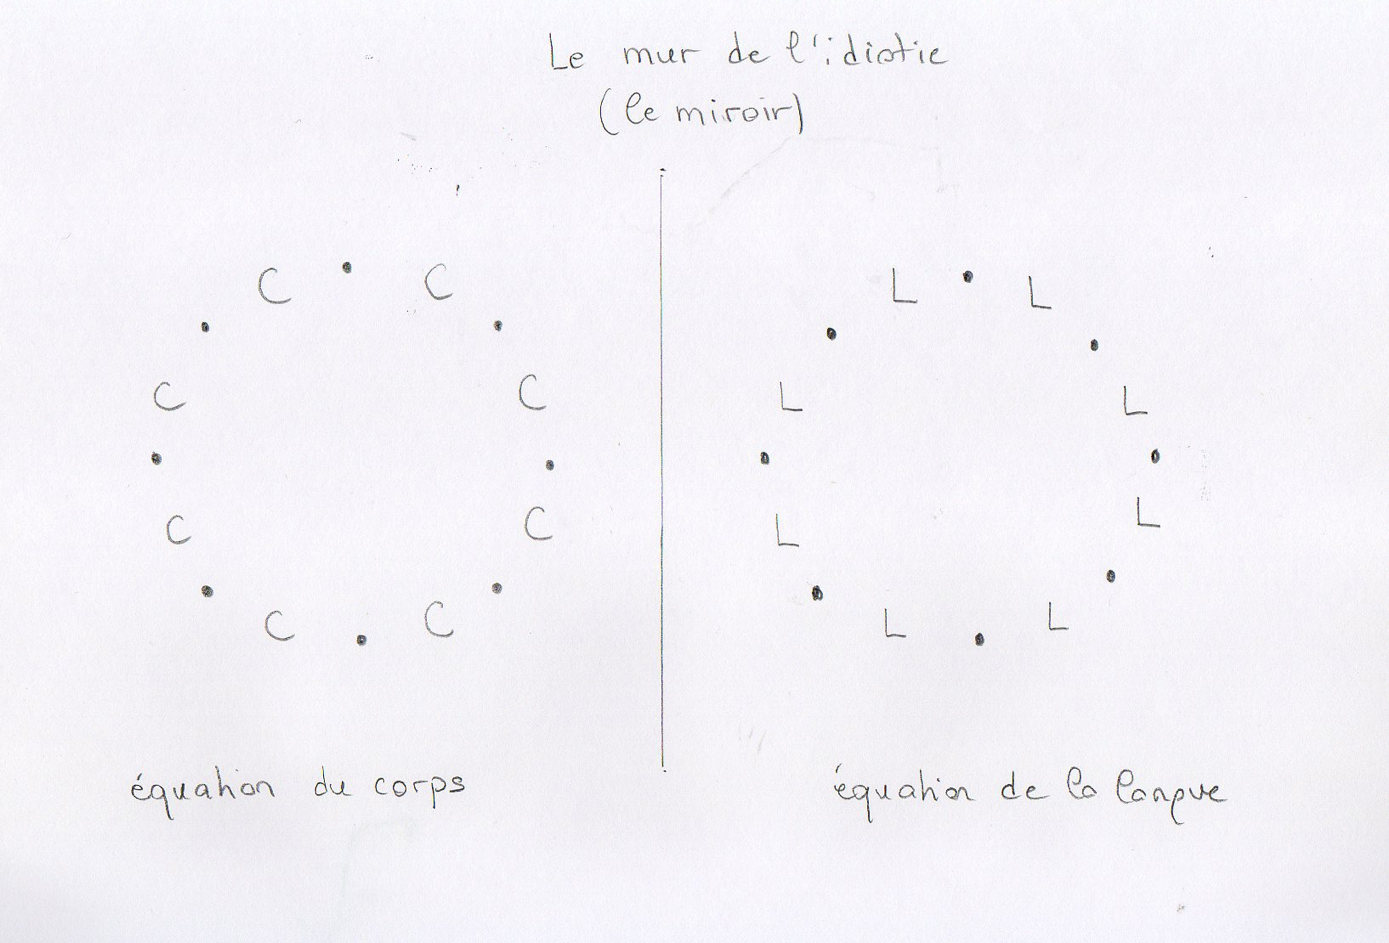 Le mur de l'idiotie
(le miroir)
C • C
• •
C C
• •
C C
• •
C • C
L • L
• •
L L
• •
L L
• •
L • L
équation du corps
équation de la langue